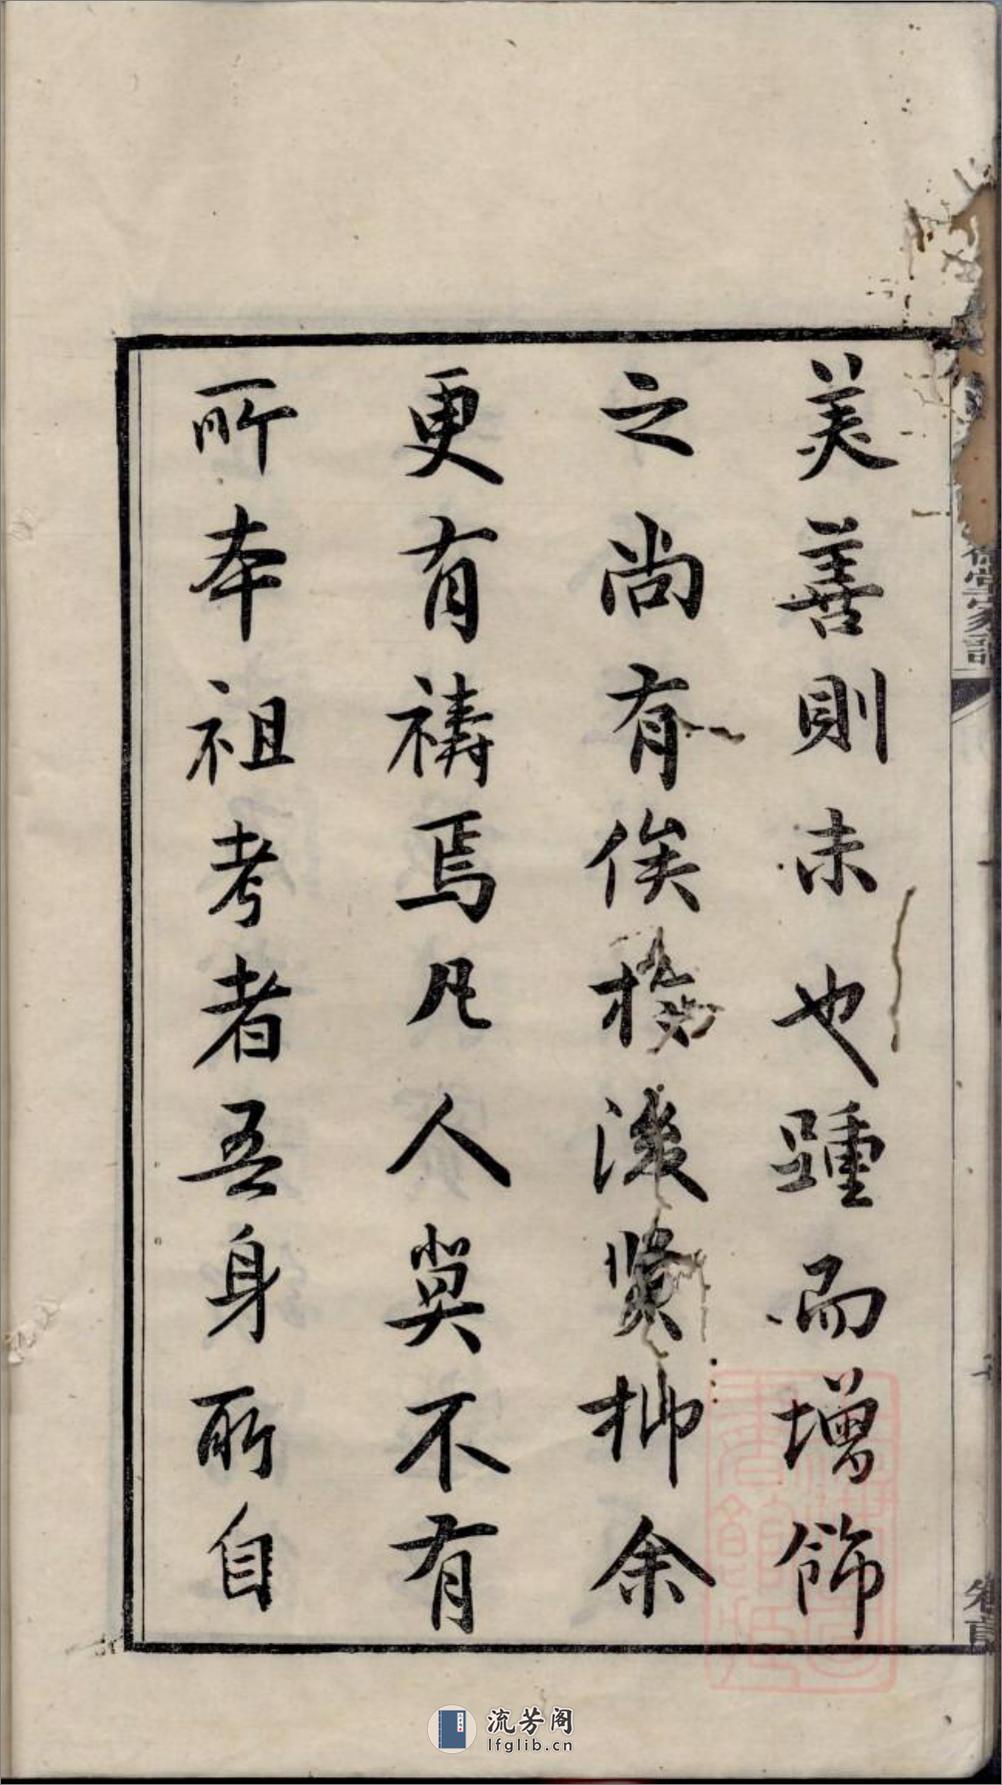 美善則未也踵而增飾
之尚有俟於後賢抑余
更有禱焉凡人莫不有
所本祖考者吾身所自
堂家譜
卷首
流芳阁
lfglib.cn